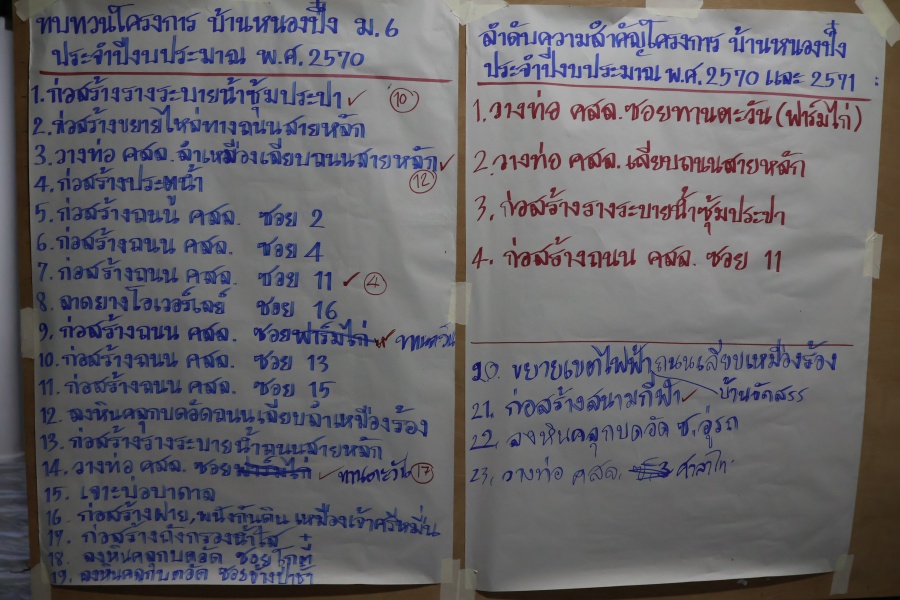 ทบทวนโครงการ บ้านหนองปึ๋ง ม.6
ประจำปีงบประมาณ พ.ศ.2570
1.ก่อสร้างรางระบายน้ำซุ้มประปา ✓ 10
2.ก่อสร้างขยายไหล่ทางถนนสายหลัก
3.วางท่อ คสล.ลำเหมืองเลียบถนนสายหลัก ✓
4.ก่อสร้างประตูน้ำ 12
5.ก่อสร้างถนน คสล. ซอย 2
6.ก่อสร้างถนน คสล. ซอย 4
7.ก่อสร้างถนน คสล. ซอย 11 ✓ 4
8.ลาดยางโอเวอร์เลย์ ซอย 16
9.ก่อสร้างถนน คสล. ซอยฟาร์มไก่ ✓ ทานตะวัน
10.ก่อสร้างถนน คสล. ซอย 13
11.ก่อสร้างถนน คสล. ซอย 15
12.ลงหินคลุกบดอัดถนนเลียบลำเหมืองร้อง
13.ก่อสร้างรางระบายน้ำถนนสายหลัก
14.วางท่อ คสล. ซอยฟาร์มไก่ ✓ ทานตะวัน 17
15. เจาะบ่อบาดาล
16. ก่อสร้างฝาย,พนังกั้นดิน เหมืองเจ้าศรีหมื่น
17. ก่อสร้างถังกรองน้ำใส
18. ลงหินคลุกบดอัด ซอย
19. ลงหินคลุกบดอัด ซอยข้างป่าช้า
ลำดับความสำคัญโครงการ บ้านหนองปึ๋ง
ประจำปีงบประมาณ พ.ศ.2570 และ 2571 :
1.วางท่อ คสล.ซอยทานตะวัน(ฟาร์มไก่)
2.วางท่อ คสล.เลียบถนนสายหลัก
3.ก่อสร้างรางระบายน้ำซุ้มประปา
4.ก่อสร้างถนน คสล. ซอย 11
20. ขยายเขตไฟฟ้าถนนเลียบเหมืองร้อง
บ้านจัดสรร
21. ก่อสร้างสนามกีฬา ✓
22. ลงหินคลุกบดอัด ซ.อู่รถ
23. วางท่อ คสล.